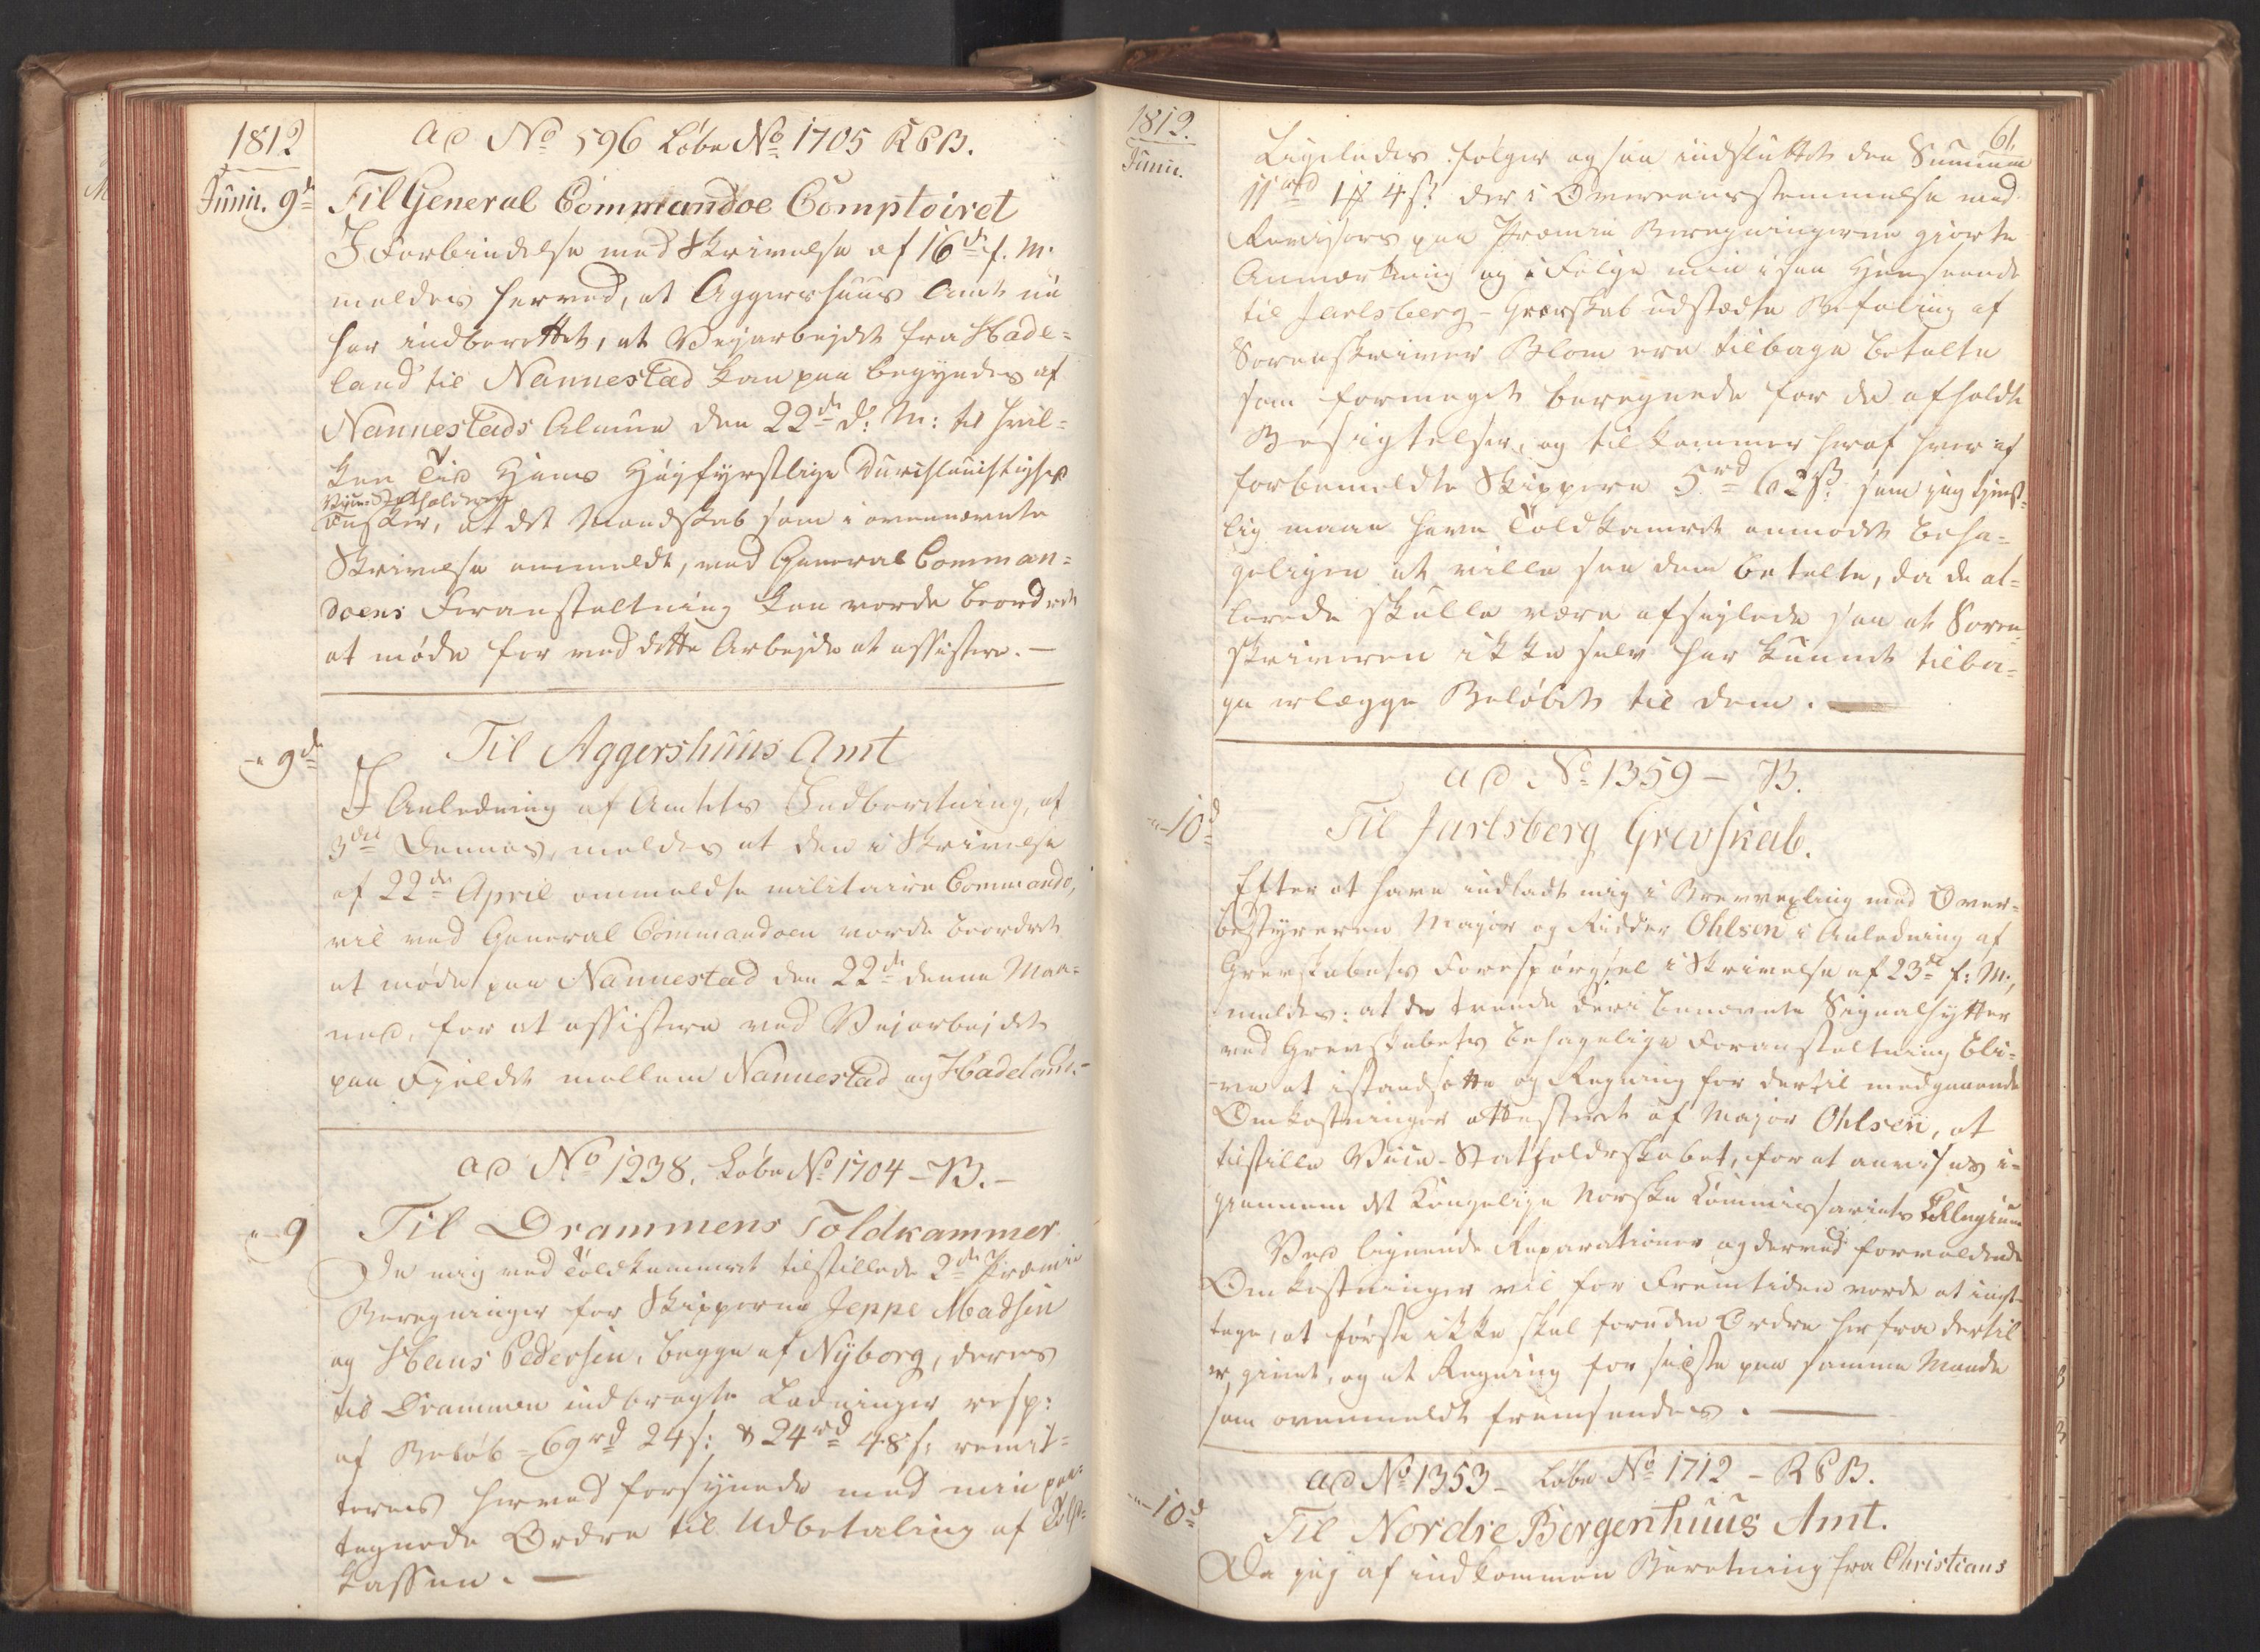 1812
Junii. 9de
ad No 596 Löbe No 1705 R&B.
Til General Commandoe Comptoiret
I Forbindelse med Skrivelse af 16de f. M.
meldes herved, at Aggershuus Amt nu
har indberettet, at Vejarbejdet fra Hade-
land til Nannestad kan paa begyndes af
Nannestads Almue den 22de d: M: til hvil-
ken Tid Hans Højfyrstlige Durchlauchtighed
Vice-Statholderen
önsker, at det Mandskab som i ovennævnte
Skrivelse ommeldt, ved General Comman-
doens Foranstaltning kan vorde beordret
at møde for ved dette Arbejde at assistere. —
- 9de
Til Aggershuus Amt
I Anledning af Amtets Indberetning, af
3die Dennes, meldes at den i Skrivelse
af 22de April ommeldte militaire Commando,
vil ved General Commandoen vorde beordret
at møde paa Nannestad den 22de denne Maa-
ned, for at assistere ved Vejarbejdet
paa Fjeldet mellem Nannestad og Hadeland.-
ad No 1238. Löbe No 1704 - B. -
- 9
Til Drammens Toldkammer
De mig ved Toldkammeret tilstillede 2de Præmie
Beregninger for Skipperne Jeppe Madsen
og Hans Pedersen, begge af Nyborg, deres
til Drammen indbragte Ladninger resp:
af Beløb - 69rd 24s: & 24rd 48s: remit-
teres herved forsynede med min paa-
tegnede Ordre til Udbetaling af Told-
kassen. —
1812.
Junii.
61.
Ligeledes følger ogsaa indsluttet den Summa
11rd 1# 4s: der i Overeensstemmelse med
Revisors paa Præmie Beregningerne giorte
Anmærkning og i Følge min i saa Henseende
til Jarlsberg - Grevskab udstædte Befaling af
Sorenskriver Blom ere tilbage betalte
som formeget beregnede for de afholdte
Besigtelser, og tilkommer heraf hver af
forbemeldte Skippere 5rd 62s: som jeg tjenst-
lig maae have Toldkamret anmodet beha-
geligen at ville see dem betalte, da de al-
lerede skulle være afseylede saa at Soren-
skriveren ikke selv har kunnet tilba-
ge erlægge Beløbet til dem. —
ad No 1359 - B.
- 10de
Til Jarlsberg Grevskab.
Efter at have indladt mig i Brevvexling med Over-
bestyreren Major og Ridder Ohlsen i Anledning af
Grevskabets Forespørgsel i Skrivelse af 23de f: M:,
meldes: at de trende deri benævnte Signalhytter
ved Grevskabets behagelige Foranstaltning bli-
ve at istandsette og Regning for dertil medgaaende
Omkostninger attesteret af Major Ohlsen, at
tilstille Vice-Statholderskabet, for at anvises i-
giennem det Kongelige Norske Commissariats Collegium
Ved lignende Reparationer og derved forvoldende
Omkostninger vil for Fremtiden vorde at iagt-
tage, at første ikke skal foruden Ordre herfra dertil
er givet, og at Regning for sidste paa samme Maade
som ovenmeldt fremsendes. —
ad No 1353 - Löbe No 1712 - R&B.
- 10de
Til Nordre Bergenhuus Amt.
Da jeg af indkommen Beretning fra Christians